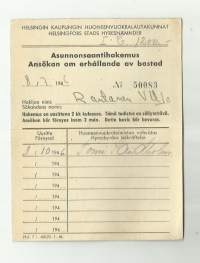 HELSINGIN KAUPUNGIN HUONEENVUOKRALAUTAKUNNAT
HELSINGFORS STADS HYRESNÄMNDER
Asunnonsaantihakemus
Ansökan om erhållande av bostad
194 6 № 50083
Hakijan nimi
Sökandens namn
Rautanen
Hakemus on uusittava 2 kk kuluessa. Tämä todistus on säilytettävä.
Ansökan bör förnyas inom 2 mån. Detta bevis bör bevaras.
Uusittu
Förnyad
Huoneenvuokralautakunnan vahvistus
Hyresnämndens bekräftelse
8/10 1946
/ 194
/ 194
/ 194
/ 194
/ 194